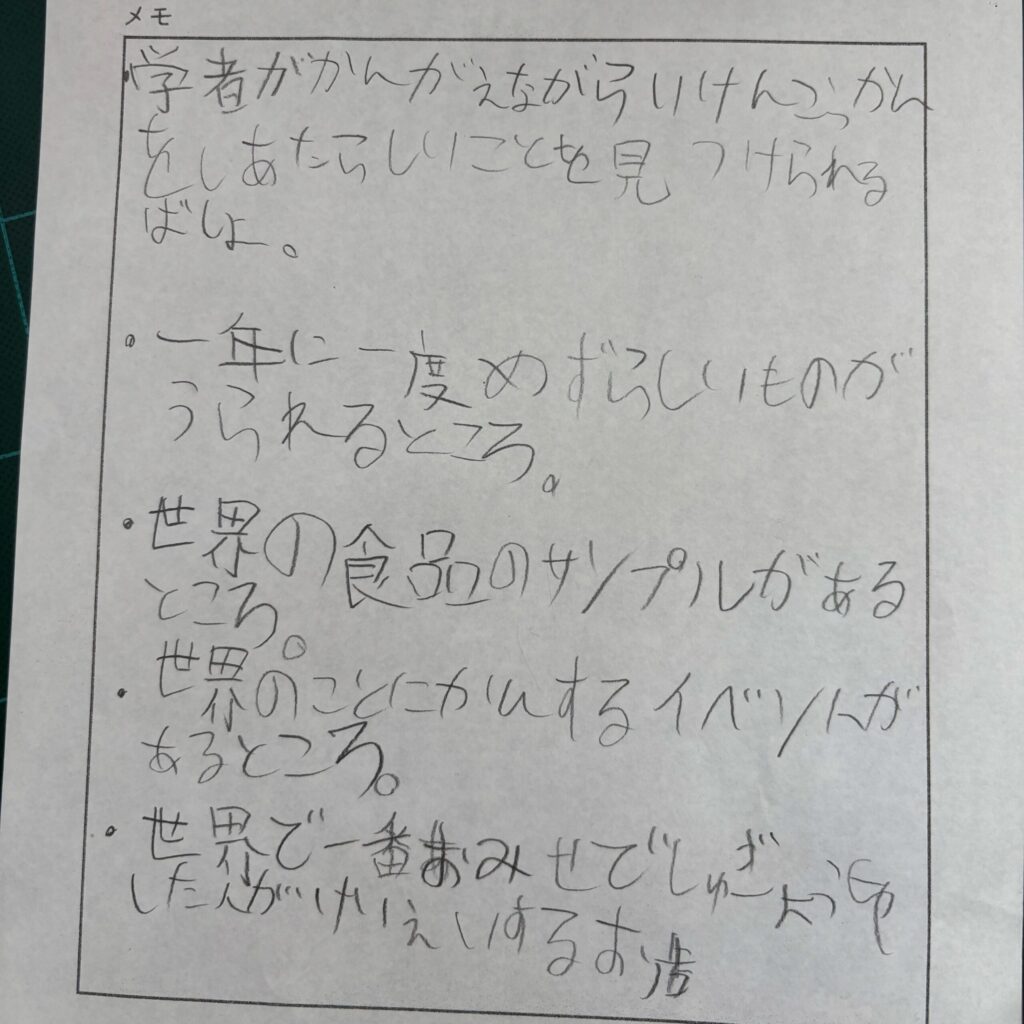 メモ
・学者がかんがえながらいけんこうかん
をしあたらしいことを見つけられる
ばしょ。
・一年に一度めずらしいものが
うられるところ。
・世界の食品のサンプルがある
ところ。
・世界のことにかんするイベントが
あるところ。
・世界で一番おみせでしゅぎょうを
した人がけいえいするお店